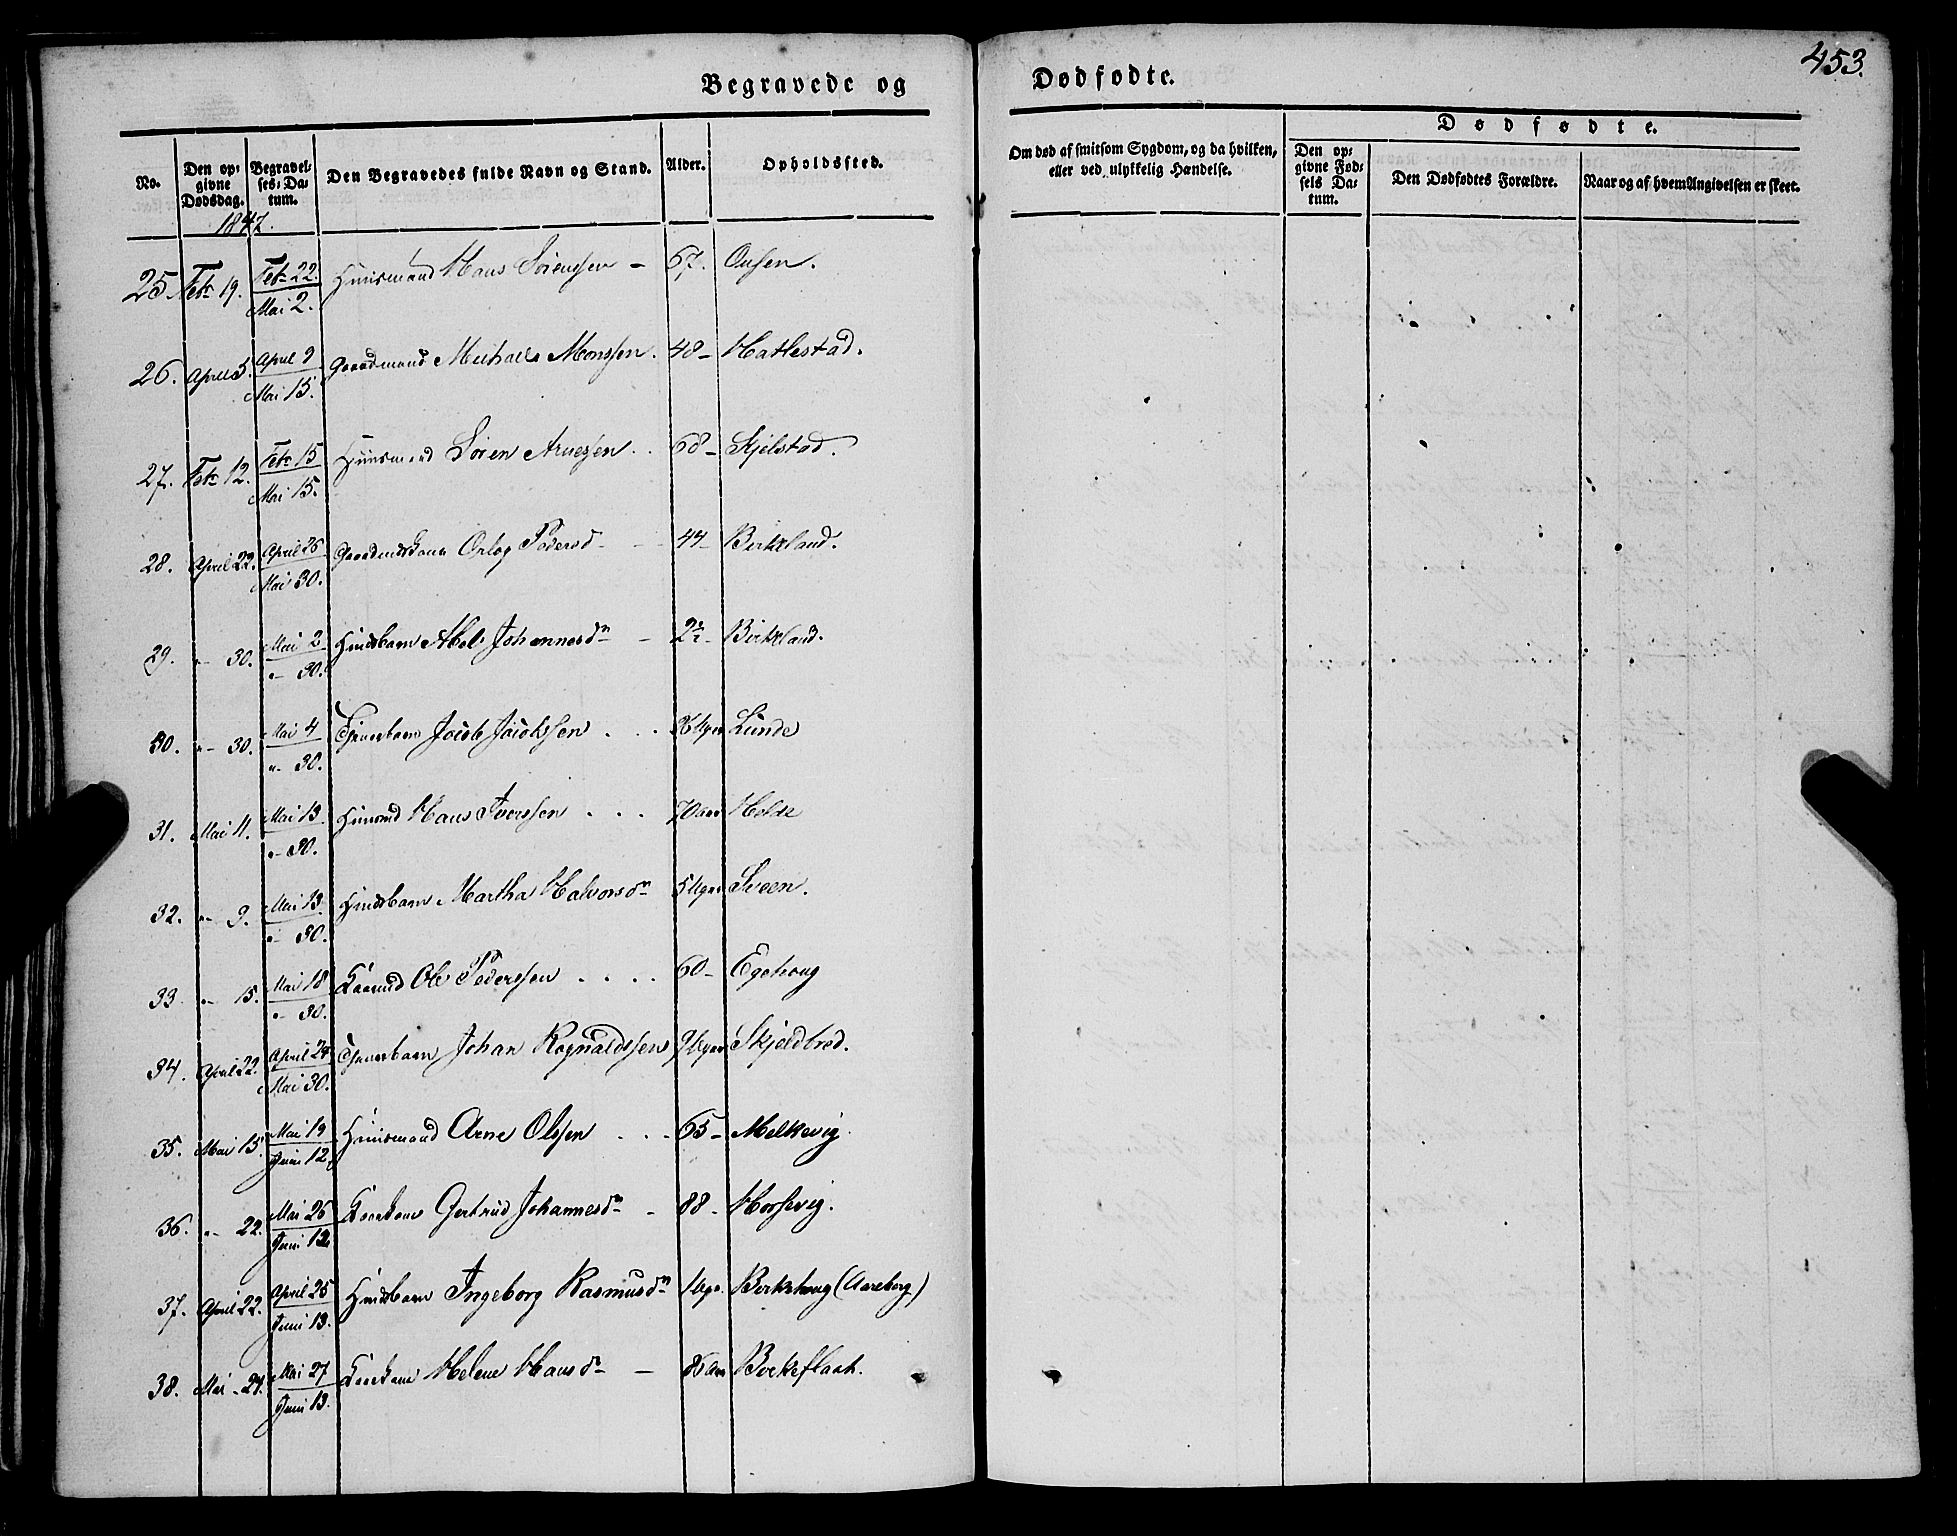 453.
Begravede og Dødfødte.
No.
Den opgivne Dødsdag.
Begravelses-Datum.
Den Begravedes fulde Navn og Stand.
Alder.
Opholdssted.
Om død af smitsom Sygdom, og da hvilken, eller ved ulykkelig Hændelse.
Dødfødte.
Den opgivne Fødsels Datum.
Den Dødfødtes Forældre.
Naar og af hvem Angivelsen er skeet.
1847.
25. Feb 19. Feb 22. Mai 2. Huusmand Hans Sørenssen 67. Ousen.
26. April 5. April 9 Mai 15. Gaardmand Michael Monssen. 48 Hatlestad.
27. Feb 12. Feb 15 Mai 15. Huusmand Søren Arnessen 68 Skjelstad.
28. April 22. April 26 Mai 30. Pedersd 44 Birkeland.
29. " 30. Mai 2 " 30. Huusbarn Johannesdr 2 Birkeland.
30. " 30. Mai 4 " 30. Jacob Jacobssen Lunde
31. Mai 11. Mai 13 " 30. Huusmd Hans Iverssen 70 aar Helde
32. " 9. Mai 13. " 30. Martha Halvorsdr 5 Uger Sveen.
33. " 15. Mai 18 " 30. Kaarmd Ole Pederssen 60 Egehoug
34. April 22. April 24 Mai 30. Johan Ragnaldssen Uger Skjeldbred.
35. Mai 15. Mai 19 Juni 12. Huusmand Arne Olssen 65 Melkevig.
36. " 22. Mai 26 Juni 12. Gertrud Johannesdr 88 Horsevig.
37. April 22. April 25 Juni 13. Ingeborg Rasmusdr 1 Uge. Birkehoug (Aareberg)
38. Mai 24. Mai 27 Juni 13. Helene Hansdr 86 Aar Birkeflaat.